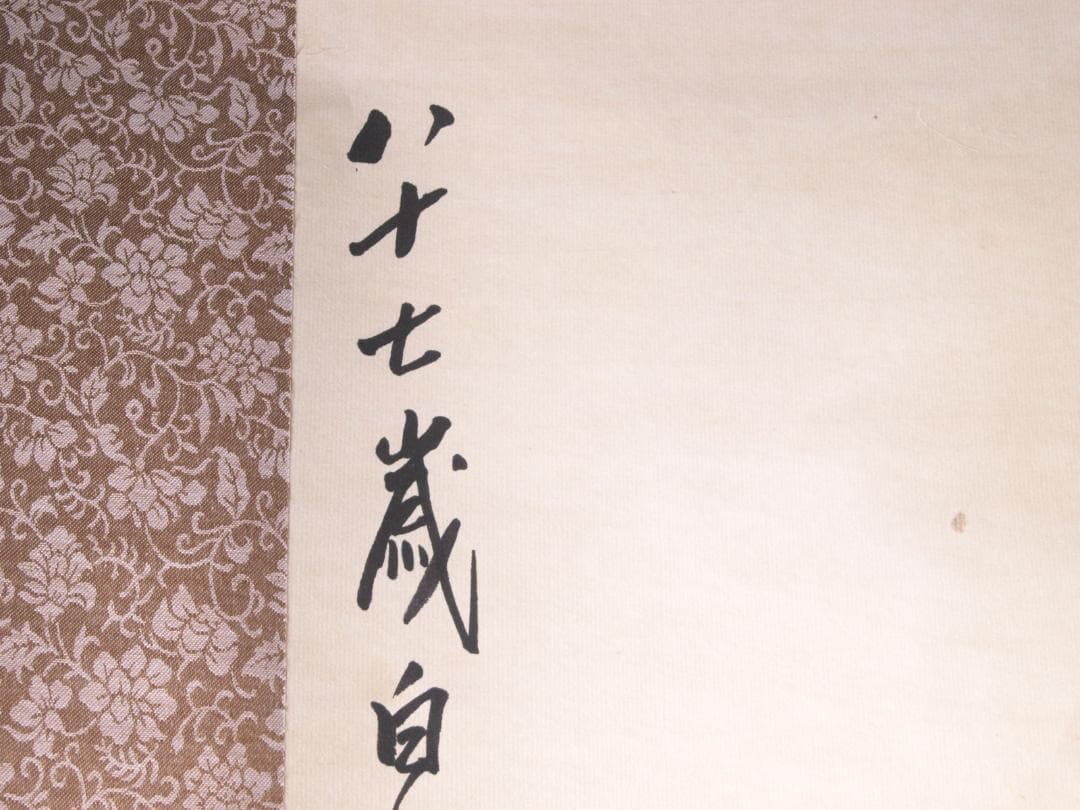 八十七歲白